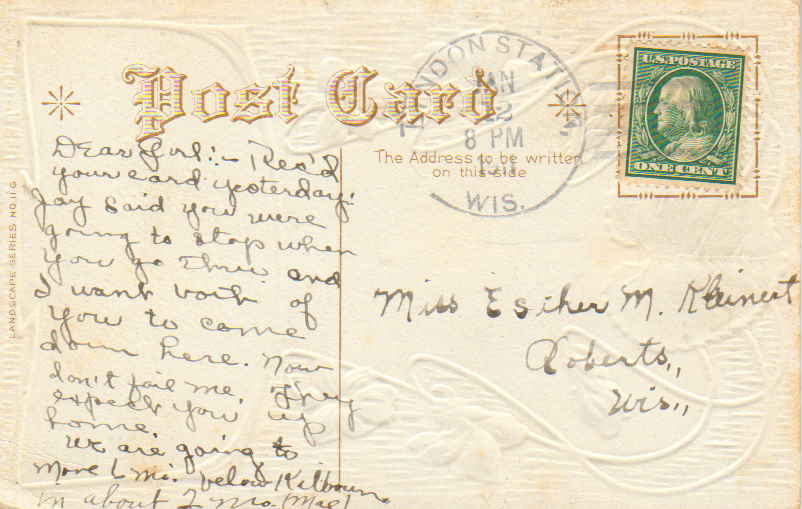 Post Card
The Address to be written
on this side
NDON STATI
22
8 PM
WIS.
U.S. POSTAGE
ONE CENT
LANDSCAPE SERIES NO. 116
Dear Girl:- Rec'd
your card yesterday.
Jay said you were
going to stop when
you go thru and
I want both of
you to come
down here. Now
don't fail me. They
expect you up
home.
We are going to
move mi. below Kilbourn
in about 2 mo.
Miss Esther M. Kleinert
Roberts,,
Wis,,